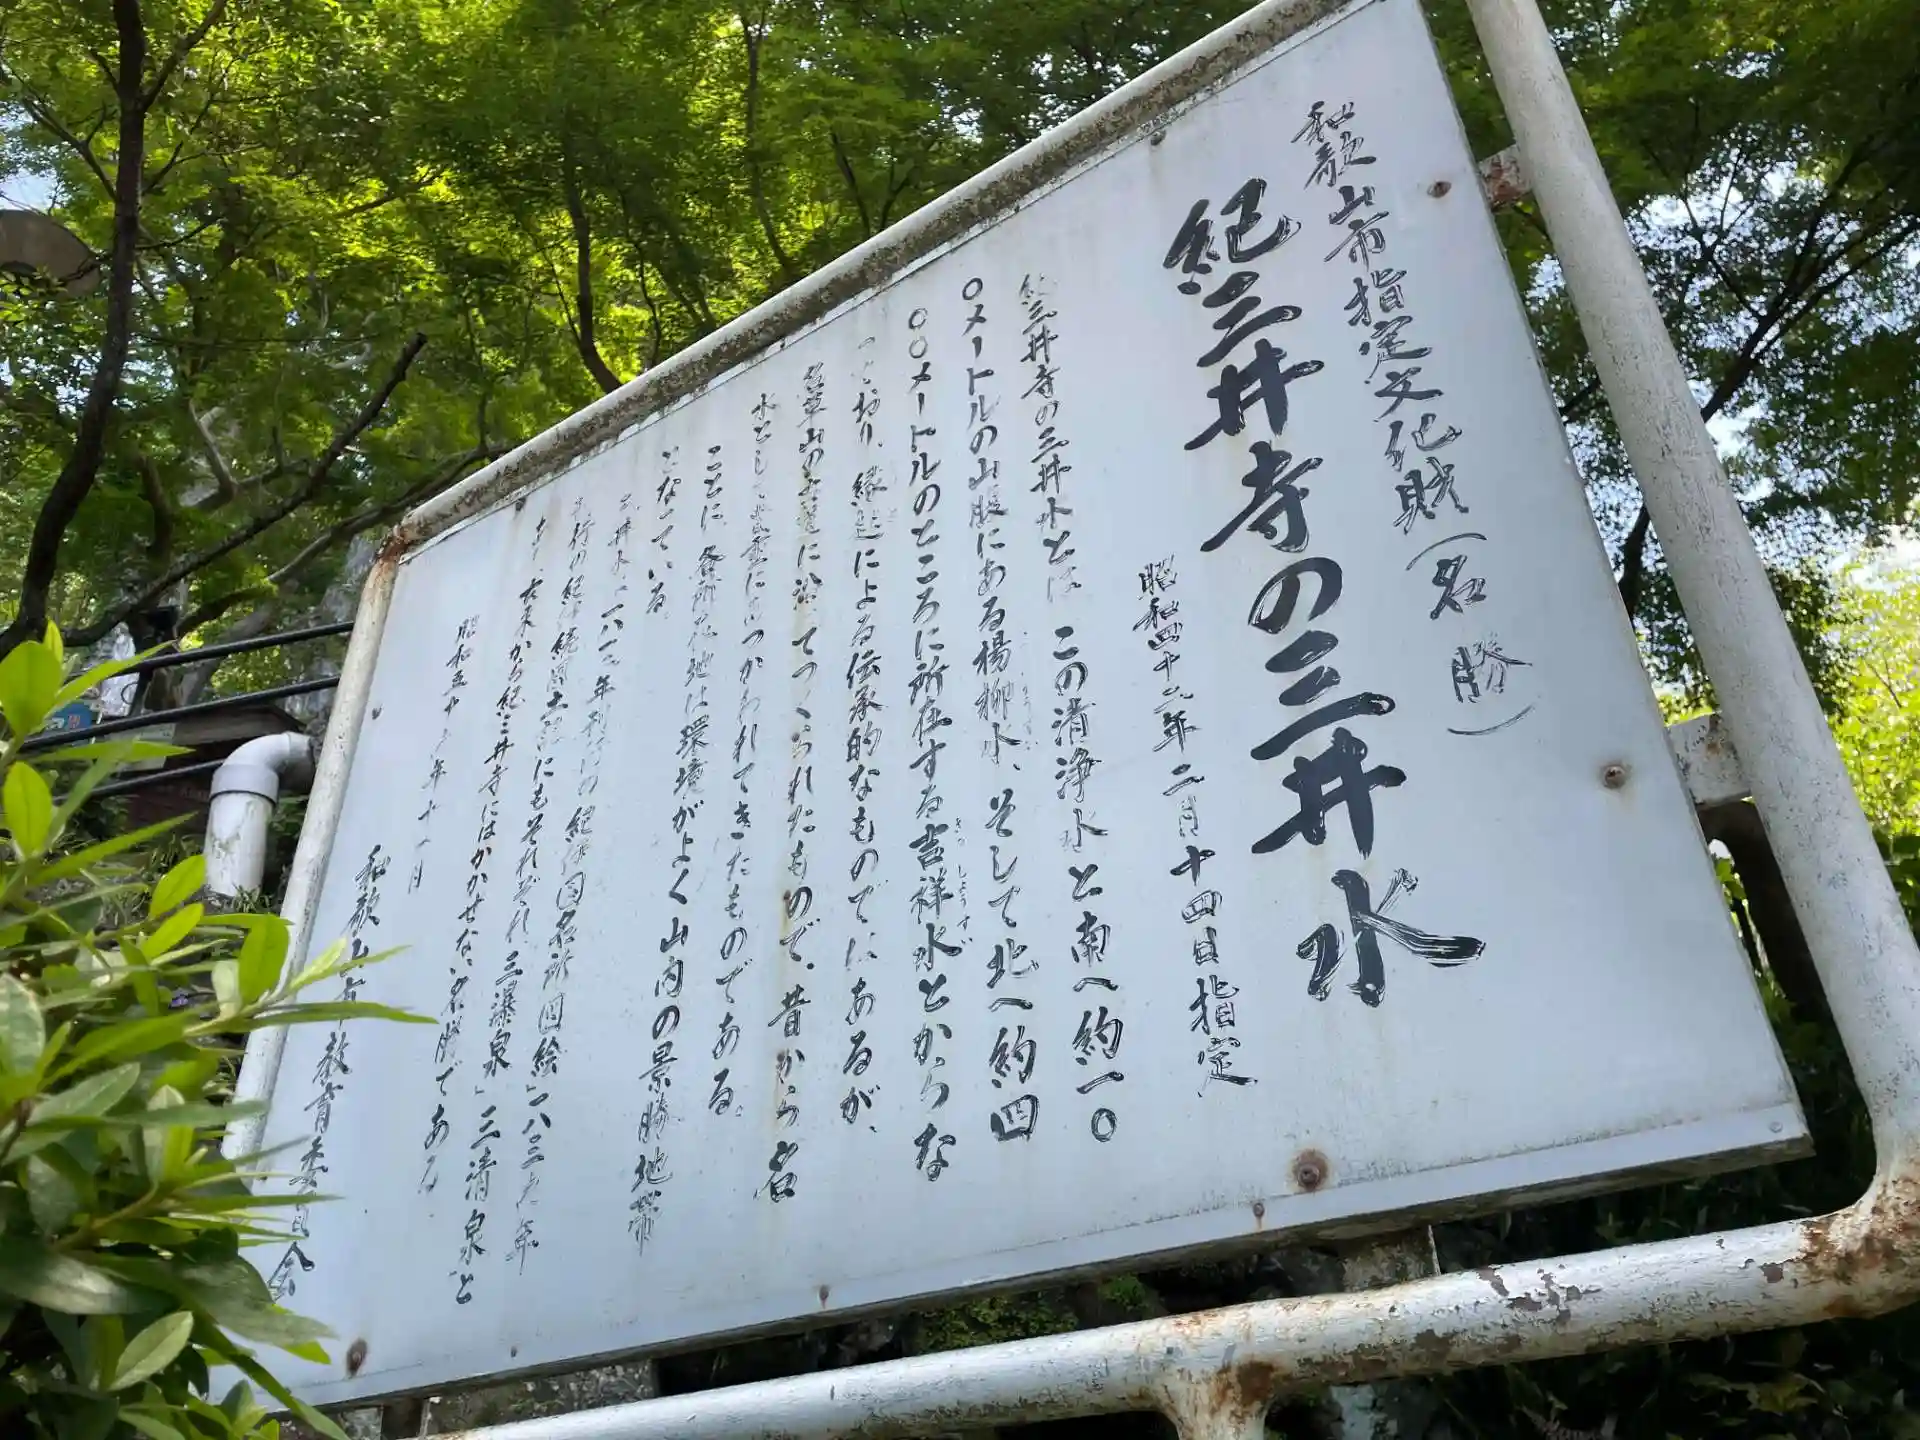 和歌山市指定文化財(名勝)
紀三井寺の三井水
昭和四十 年二月十四日指定
紀三井寺の三井水とは、この清浄水と南へ約一〇
〇メートルの山腹にある楊柳水、そして北へ約四
〇〇メートルのところに所在する吉祥水とからな
きっしょうすい
っており、縁起による伝承的なものではあるが、
名草山の に沿ってつくられたもので、昔から名
水として にもつかわれてきたものである。
ことに、各所在地は環境がよく山内の景勝地帯
となっている。
三井水は、一八一二年刊行の「紀伊国名所図絵」一八三九年
刊行の紀伊続風土記にもそれぞれ「三瀑泉」「三清泉」と
あり、古来から紀三井寺にはかかせない名勝である。
昭和五十 年十一月
和歌山市教育委員会